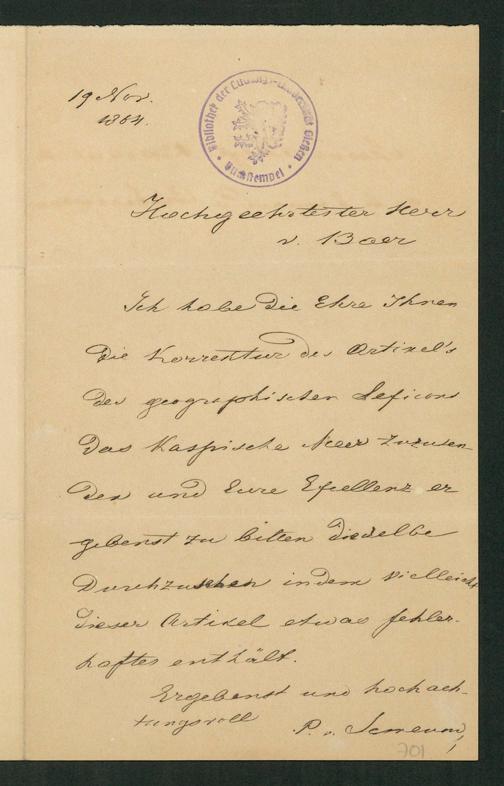 19 Nov.
1864.
Bibliothek der Ludwigs-Universität Gießen
Hochgeehrtester Herr
v. Baer
Ich habe die Ehre Ihnen
die Korrektur des Artikel's
des geographischen Lexicons
das Kaspische Meer zuzusen-
den und Eure Exellenz er
gebenst zu bitten dieselbe
durchzusehen indem vielleicht
dieser Artikel etwas fehler-
haftes enthält.
Ergebenst und hochach-
tungsvoll
P. v. Semenow
701